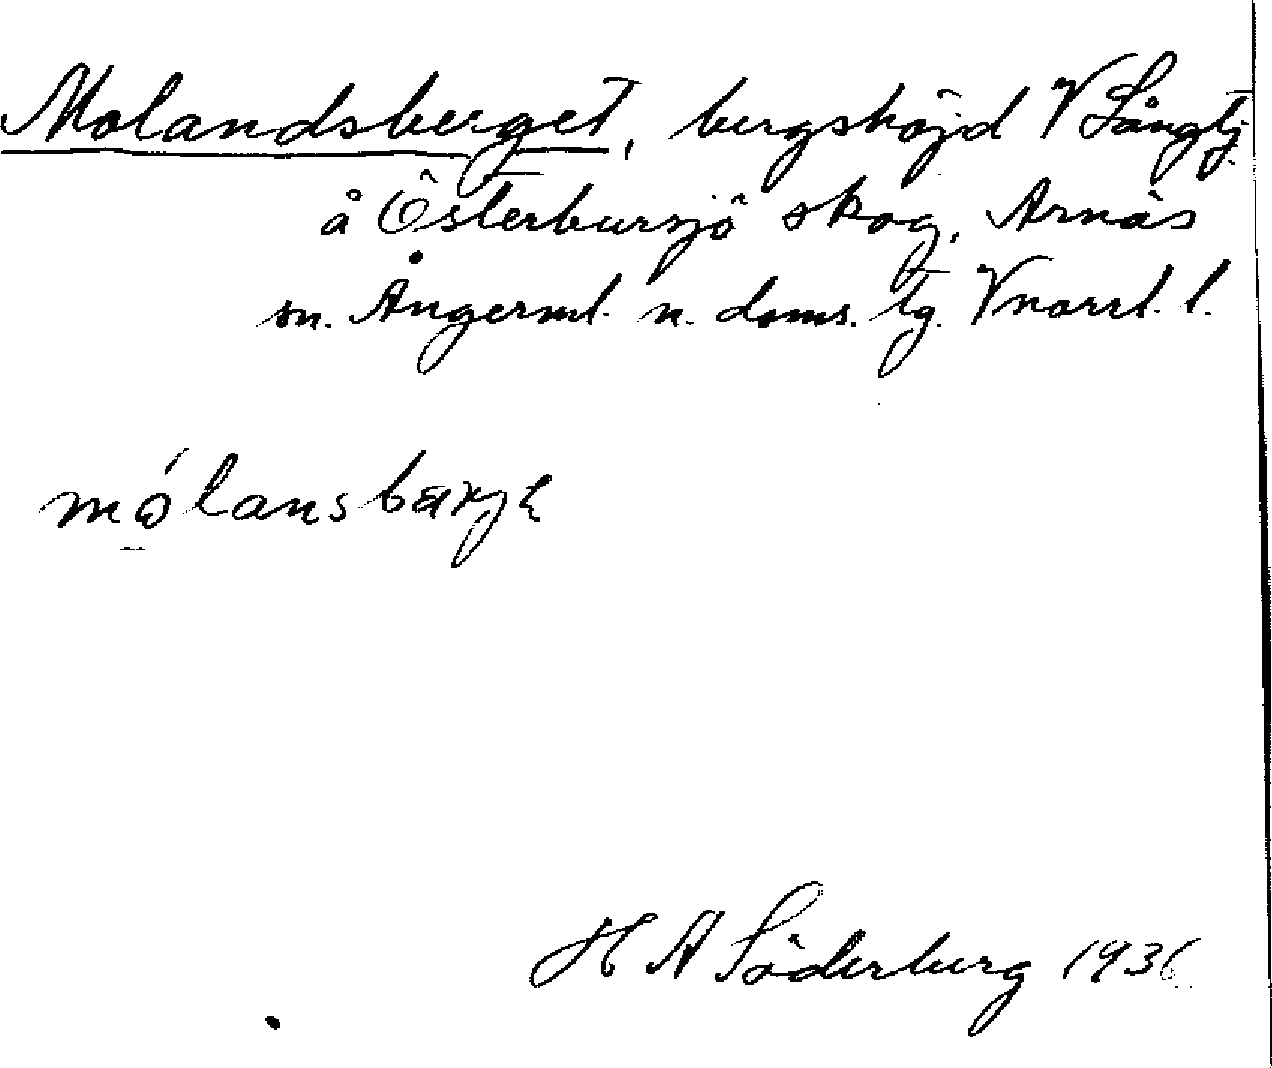 Molandsberget, bergshöjd V Långtj.
å Österbursjö skog, Arnäs
sn. Ångerml. n. doms. tg. Vnorrl. l.
mólansbærjɛ
H A Söderberg 1936